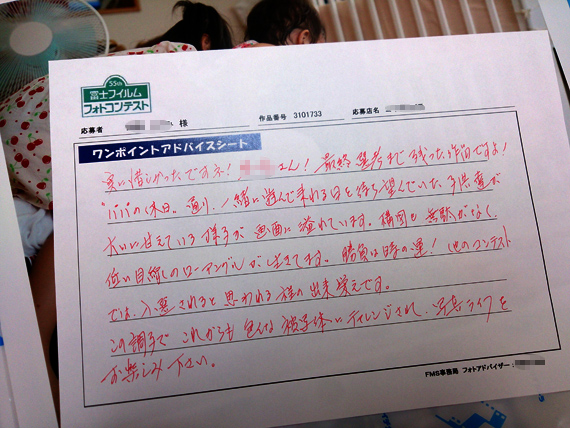 55th
富士フイルム
フォトコンテスト
応募者 様 作品番号 3101733 応募店名
ワンポイントアドバイスシート
惜しかったですネ! さん! 最終選考まで残った作品ですよ!
"パパの休日"通り、一緒に遊んで来れる日を待ち望んでいた子供達が
大いに甘えている様子が画面に溢れています。構図も無駄がなく、
低い目線のローアングルが生きてます。勝負は時の運! 他のコンテスト
では、入選されると思われる程の出来栄えです。
この調子でこれからも色んな被写体にチャレンジされ、写真ライフを
お楽しみ下さい。
FMS事務局 フォトアドバイザー: